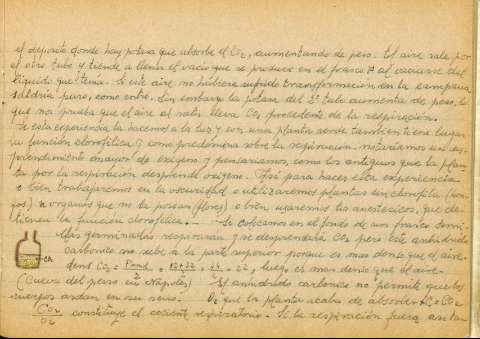 el deposito donde hay potasa que absorbe el CO₂, aumentando de peso. El aire sale por
el otro tubo y tiende a llenar el vacio que se produce en el frasco P al vaciarse del
líquido que tenía. Si este aire no hubiese sufrido transformacion en la campana
saldría puro, como entró. Sin embargo la potasa del 2º tubo aumenta de peso, lo
que nos prueba que el aire al salir lleva CO₂ procedente de la respiración.
Si esta experiencia la hacemos a la luz y con una planta verde tambien tiene lugar
la función clorofílica y como predomina sobre la respiracion notaríamos un des-
prendimiento mayor de oxígeno y pensaríamos, como los antiguos que la plan-
ta por la respiración desprende oxígeno. Así para hacer esta experiencia
o bien trabajaremos en la oscuridad o utilizaremos plantas sin clorofila (hon-
gos) u organos que no la posean (flores) o bien usaremos los anestesicos, que de-
tienen la función clorofílica. - Si colocamos en el fondo de un frasco semi-
llas germinadas respirarán y se desprenderá CO₂ pero este anhidrido
carbonico no sube a la parte superior porque es mas denso que el aire.
dens CO₂ = = 12+32 = 44 = 22, luego es mas denso que el aire
(Cueva del perro en Nápoles) El anhidrido carbonico no permite que los
cuerpos ardan en su seno. O₂ que la planta acaba de absorber + C = CO₂
CO₂/O₂ constituye el cociente respiratorio. Si la respiración fuera an tan